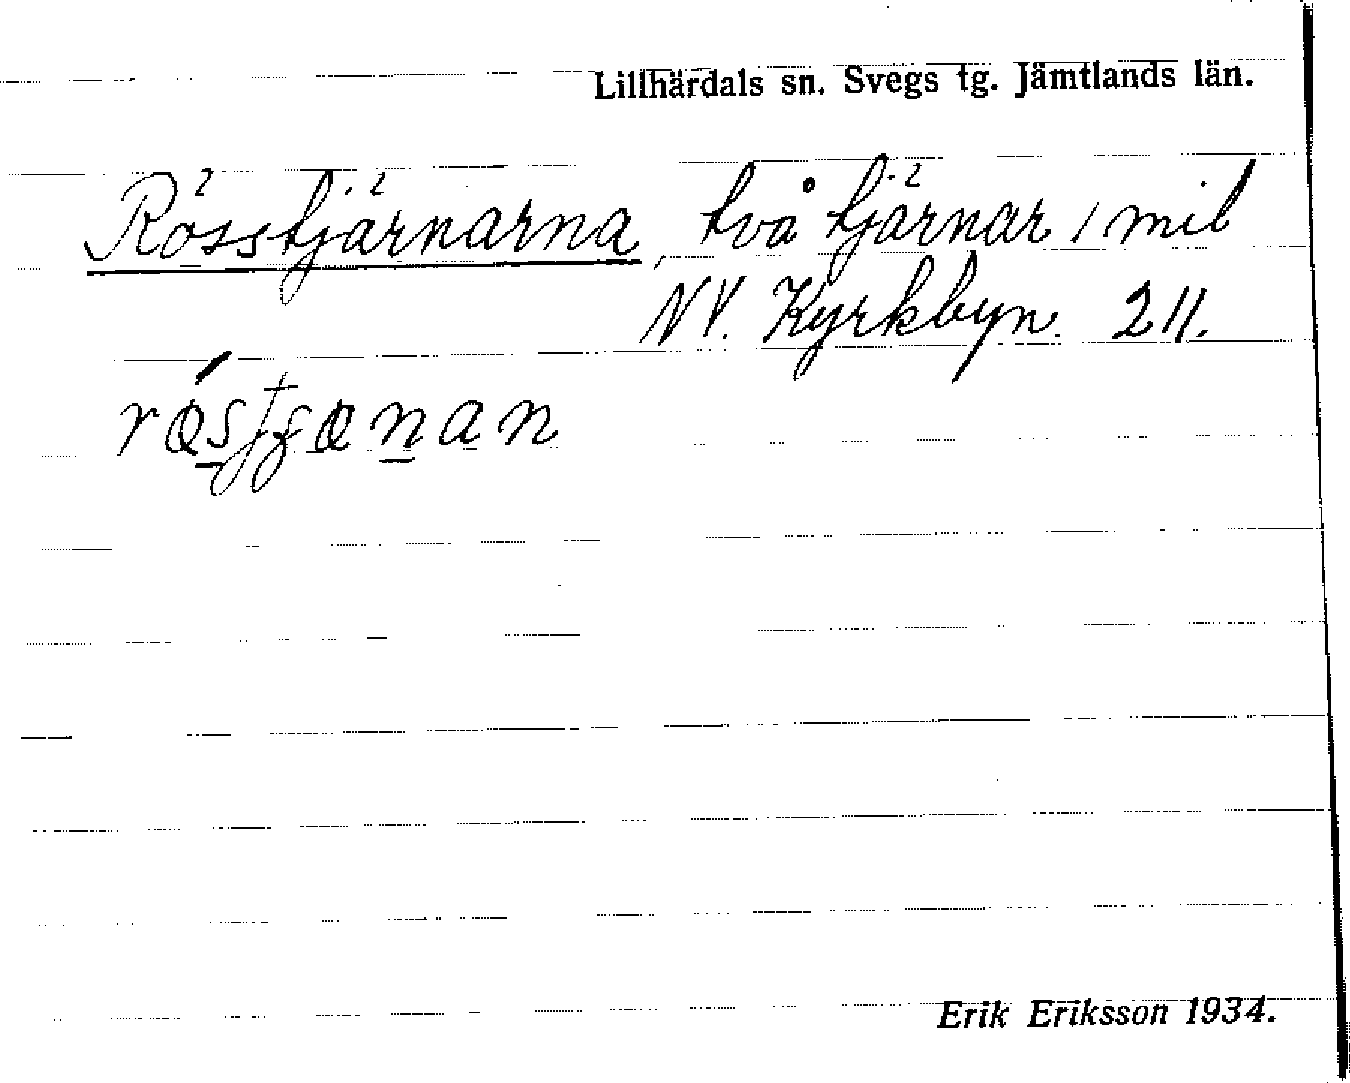 Lillhärdals sn. Svegs tg. Jämtlands län.
Rösstjärnarna, två tjärnar 1 mil
NV. Kyrkbyn. 211.
Erik Eriksson 1934.